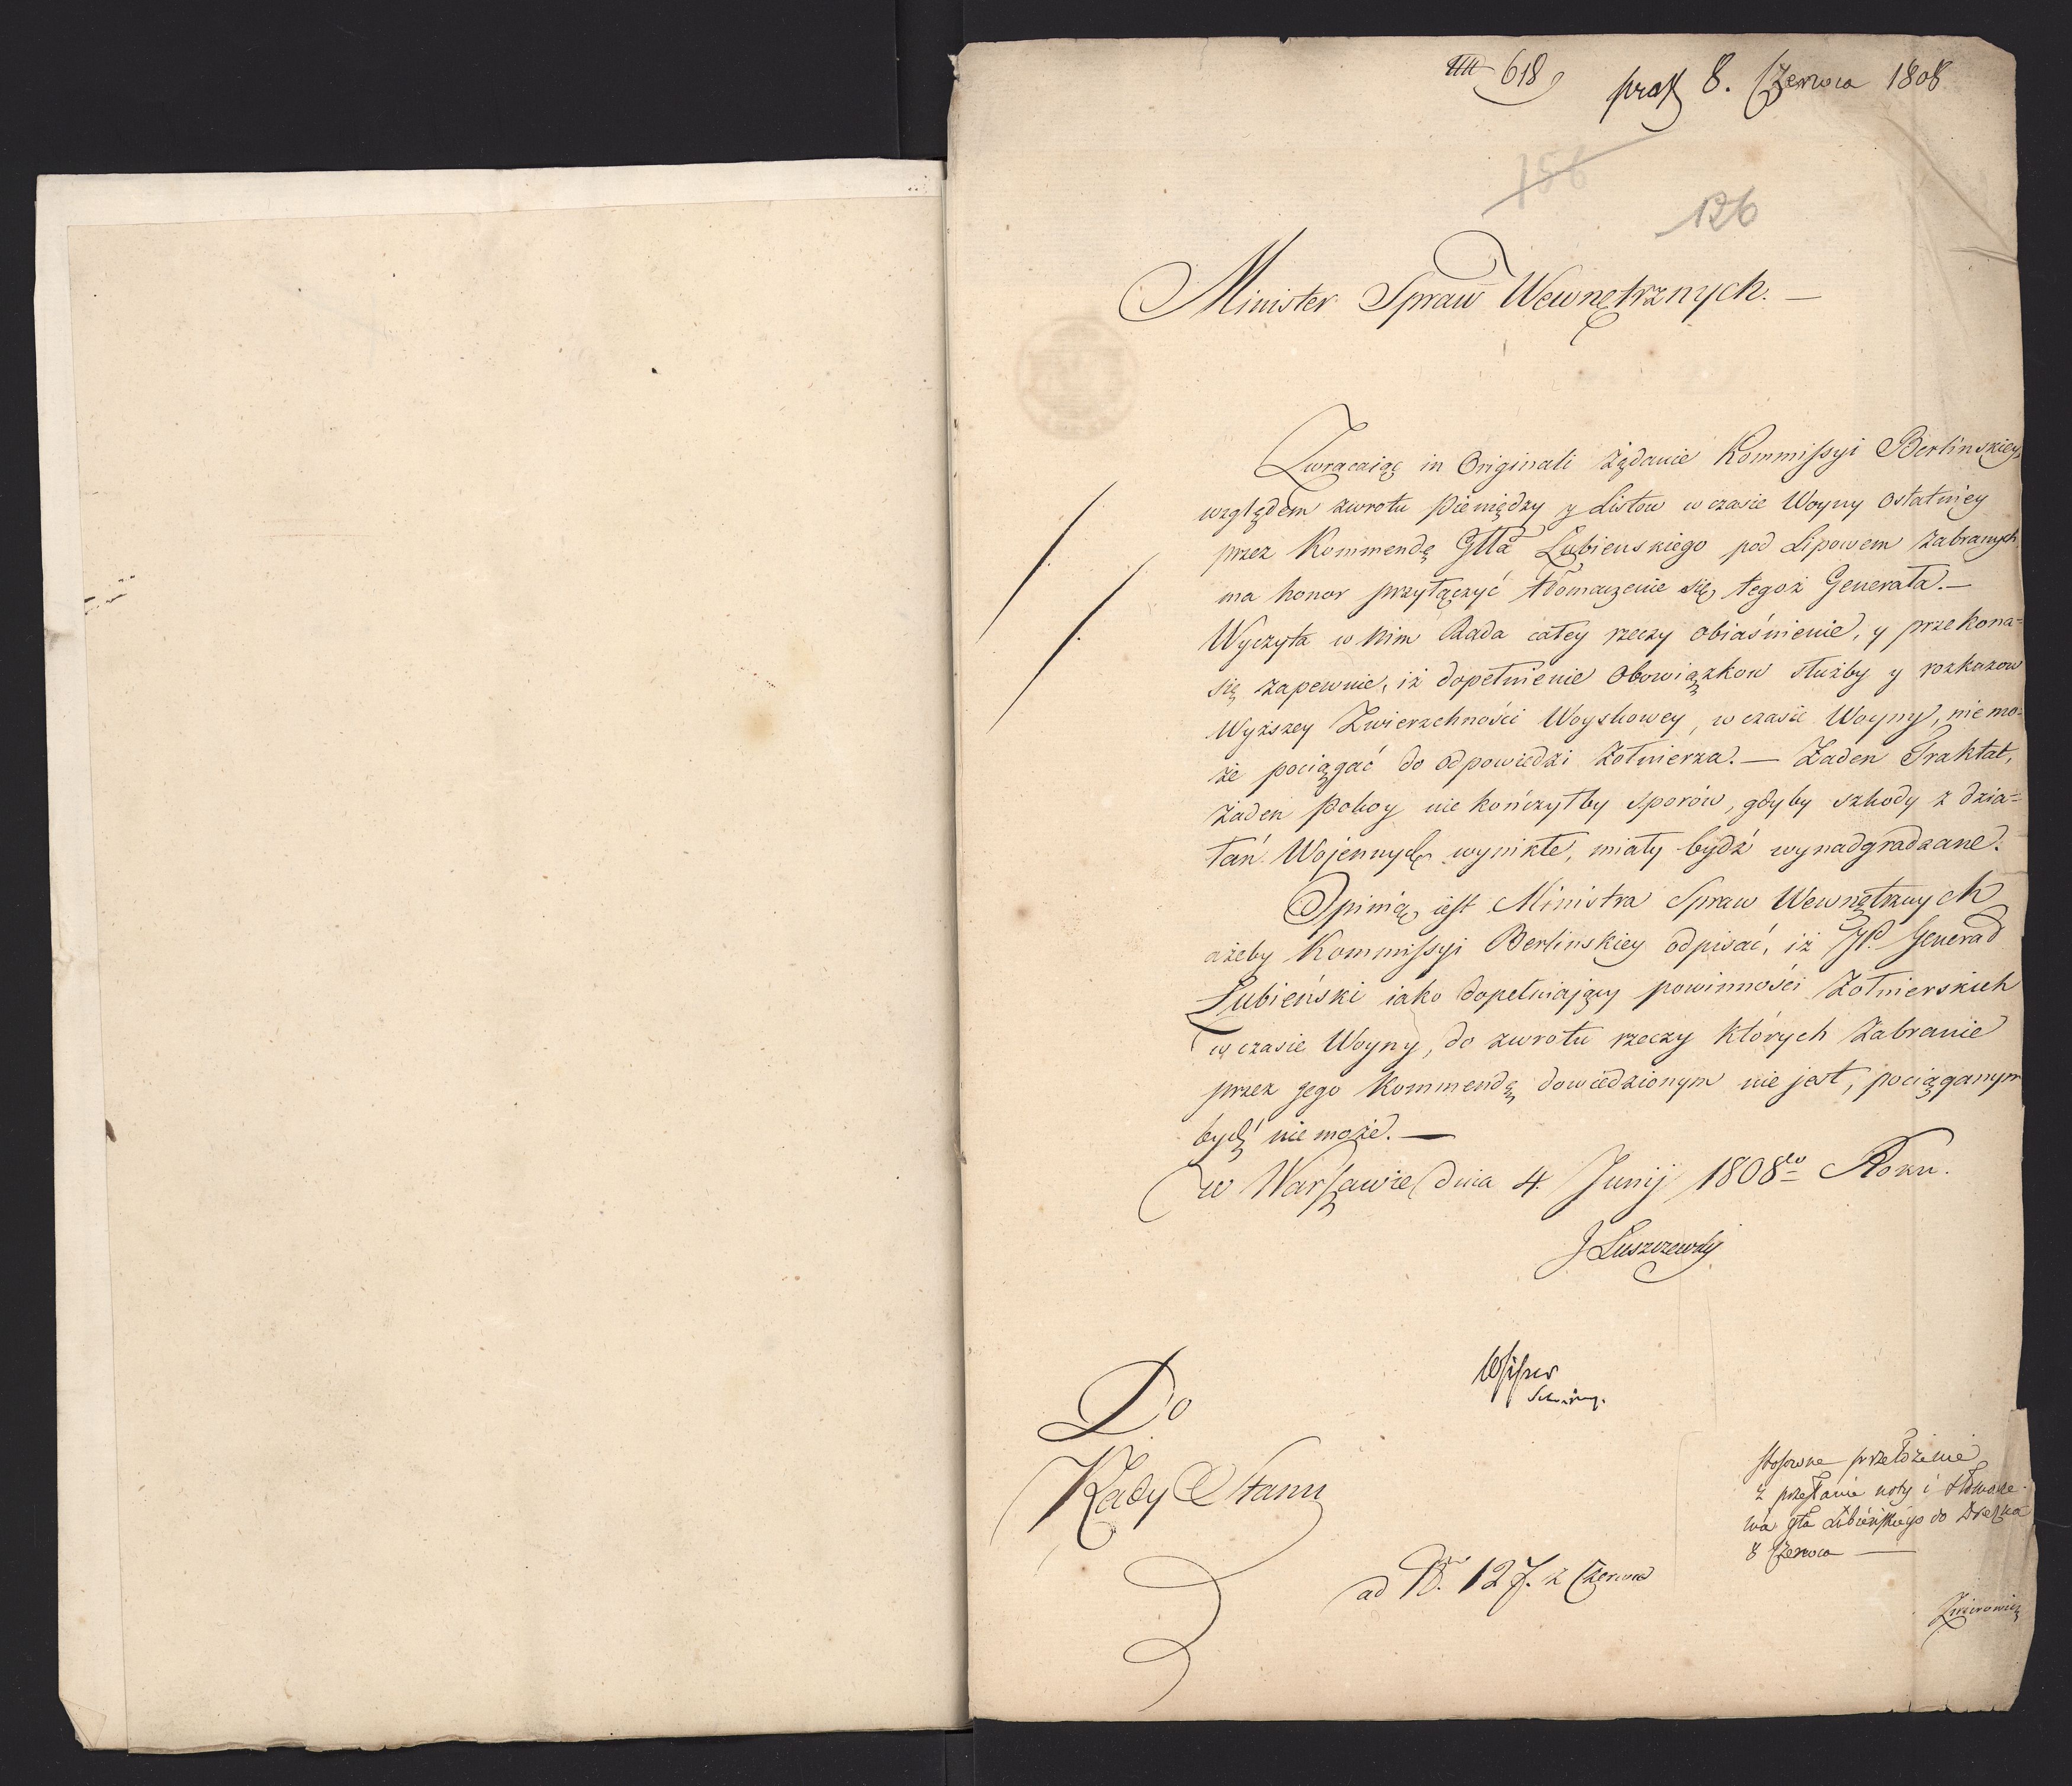 618 pras 8. Czerwca 1808
156
126
Minister Spraw Wewnętrznych. —
Zwracaiąc in Originali żądanie Kommissyi Berlinskiey
względem zwrotu pieniędzy y Listow w czasie Woyny ostatniey
przez Kommendę Głła Łubienskiego pod Lipowem zabranych
ma honor przyłączyć tłomaczenie się tegoż Generała. —
Wyczyta w nim Rada całey rzeczy obiaśnienie, y przekona=
się zapewnie, iż dopełnienie Obowiązkow służby y rozkazow
Wyższey Zwierzchności Woyskowey, w czasie Woyny, nie mo=
że pociągać do odpowiedzi Żołnierza. — Żaden Traktat,
żaden pokoy nie kończyłby sporów, gdyby szkody z dzia=
łań Wojennych wynikłe, miały bydź wynadgradzane.
Opinią iest Ministra Spraw Wewnętrznych
ażeby Kommissyi Berlinskiey odpisać, iż JP. Generał
Łubieński iako dopełniający powinności Żołnierskich
w czasie Woyny, do zwrotu rzeczy których zabranie
przez jego Kommendę dowiedzionym nie jest, pociąganym
bydź nie może. —
w Warszawie dnia 4 Junij 1808go Roku.
J Łuszczewski
Do
Rady Stanu
stosowne przełożenie
z przesłanie noty i tłomacze-
nia gła Łubieńskiego do Drezna
8 Czerwca —
ad N. 127. z Czerwca